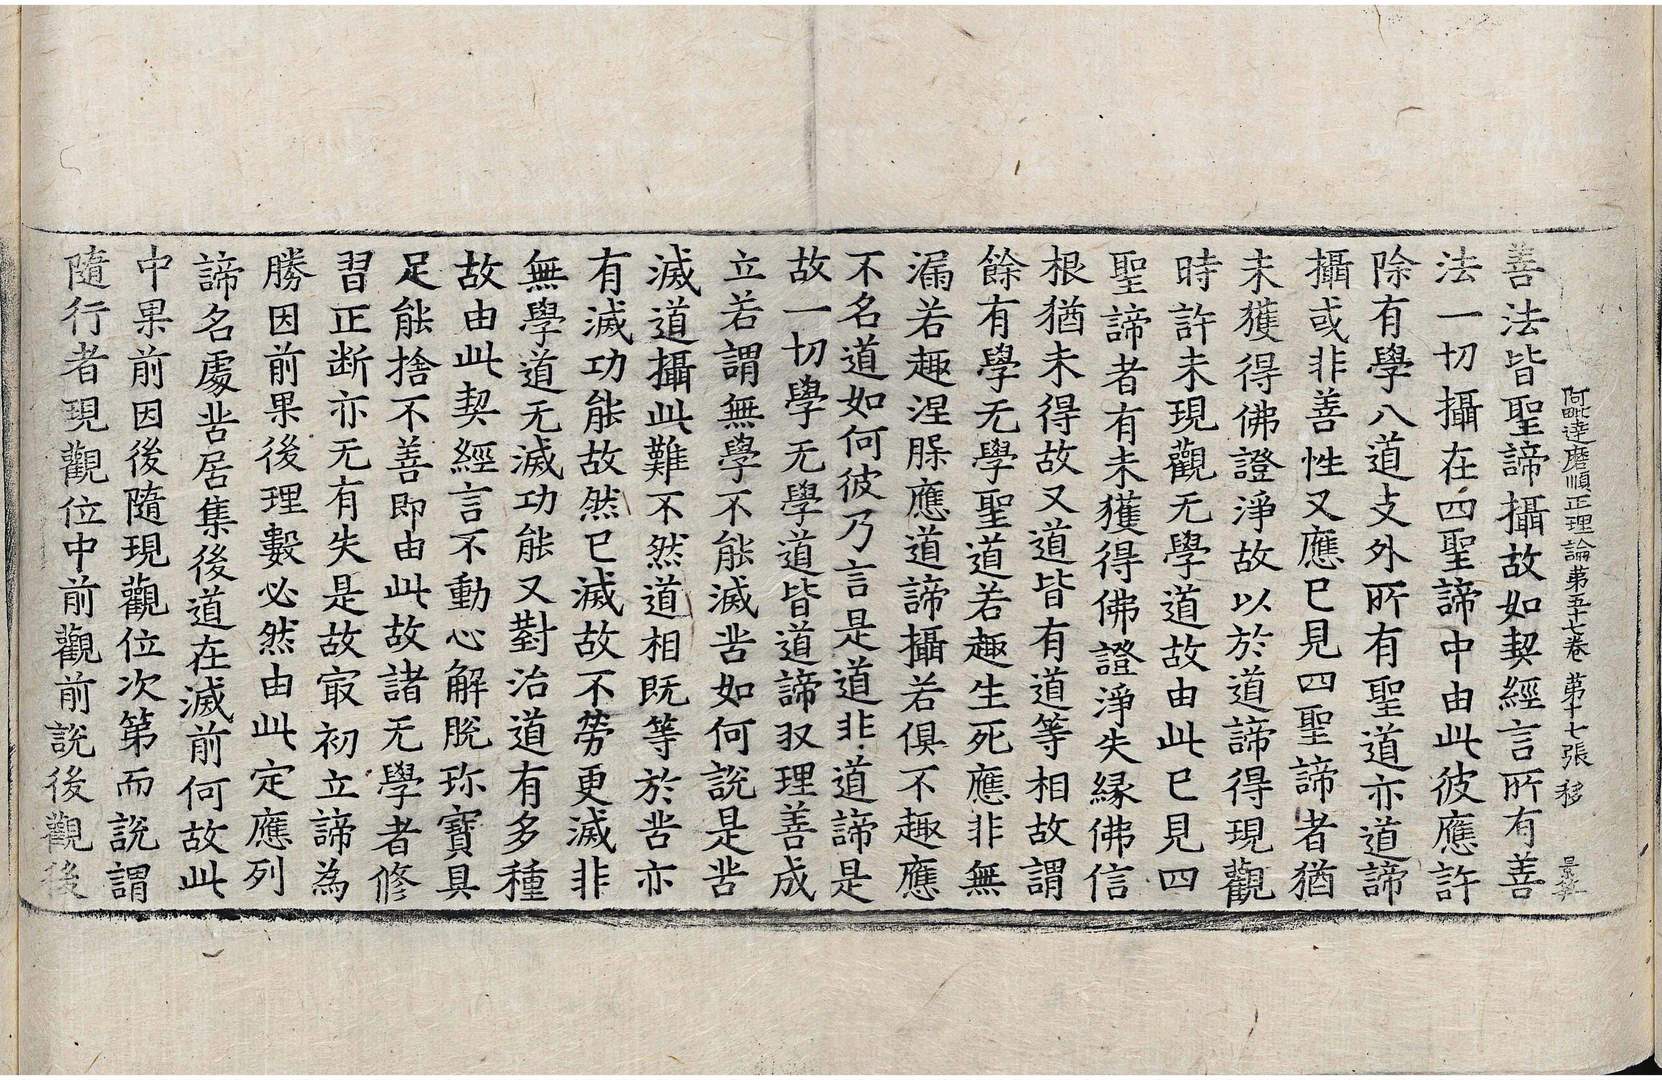 阿毗達磨順正理論第五十七卷 第十七張 移 
善法皆聖諦攝故如契經言所有善
法一切攝在四聖諦中由此彼應許
除有學八道支外所有聖道亦道諦
攝或非善性又應已見四聖諦者猶
未獲得佛證淨故以於道諦得現觀
時許未現觀无學道故由此已見四
聖諦者有未獲得佛證淨失緣佛信
根猶未得故又道皆有道等相故謂
餘有學无學聖道若趣生死應非無
漏若趣涅槃應道諦攝若俱不趣應
不名道如何彼乃言是道非道諦是
故一切學无學道皆道諦収理善成
立若謂無學不能滅苦如何說是苦
滅道攝此難不然道相既等於苦亦
有滅功能故然已滅故不勞更滅非
無學道无滅功能又對治道有多種
故由此契經言不動心解脫珎寶具
足能捨不善即由此故諸无學者修
習正断亦无有失是故寂初立諦為
勝因前果後理數必然由此定應列
諦名處苦居集後道在滅前何故此
中果前因後隨現觀位次第而說謂
隨行者現觀位中前觀前說後觀後